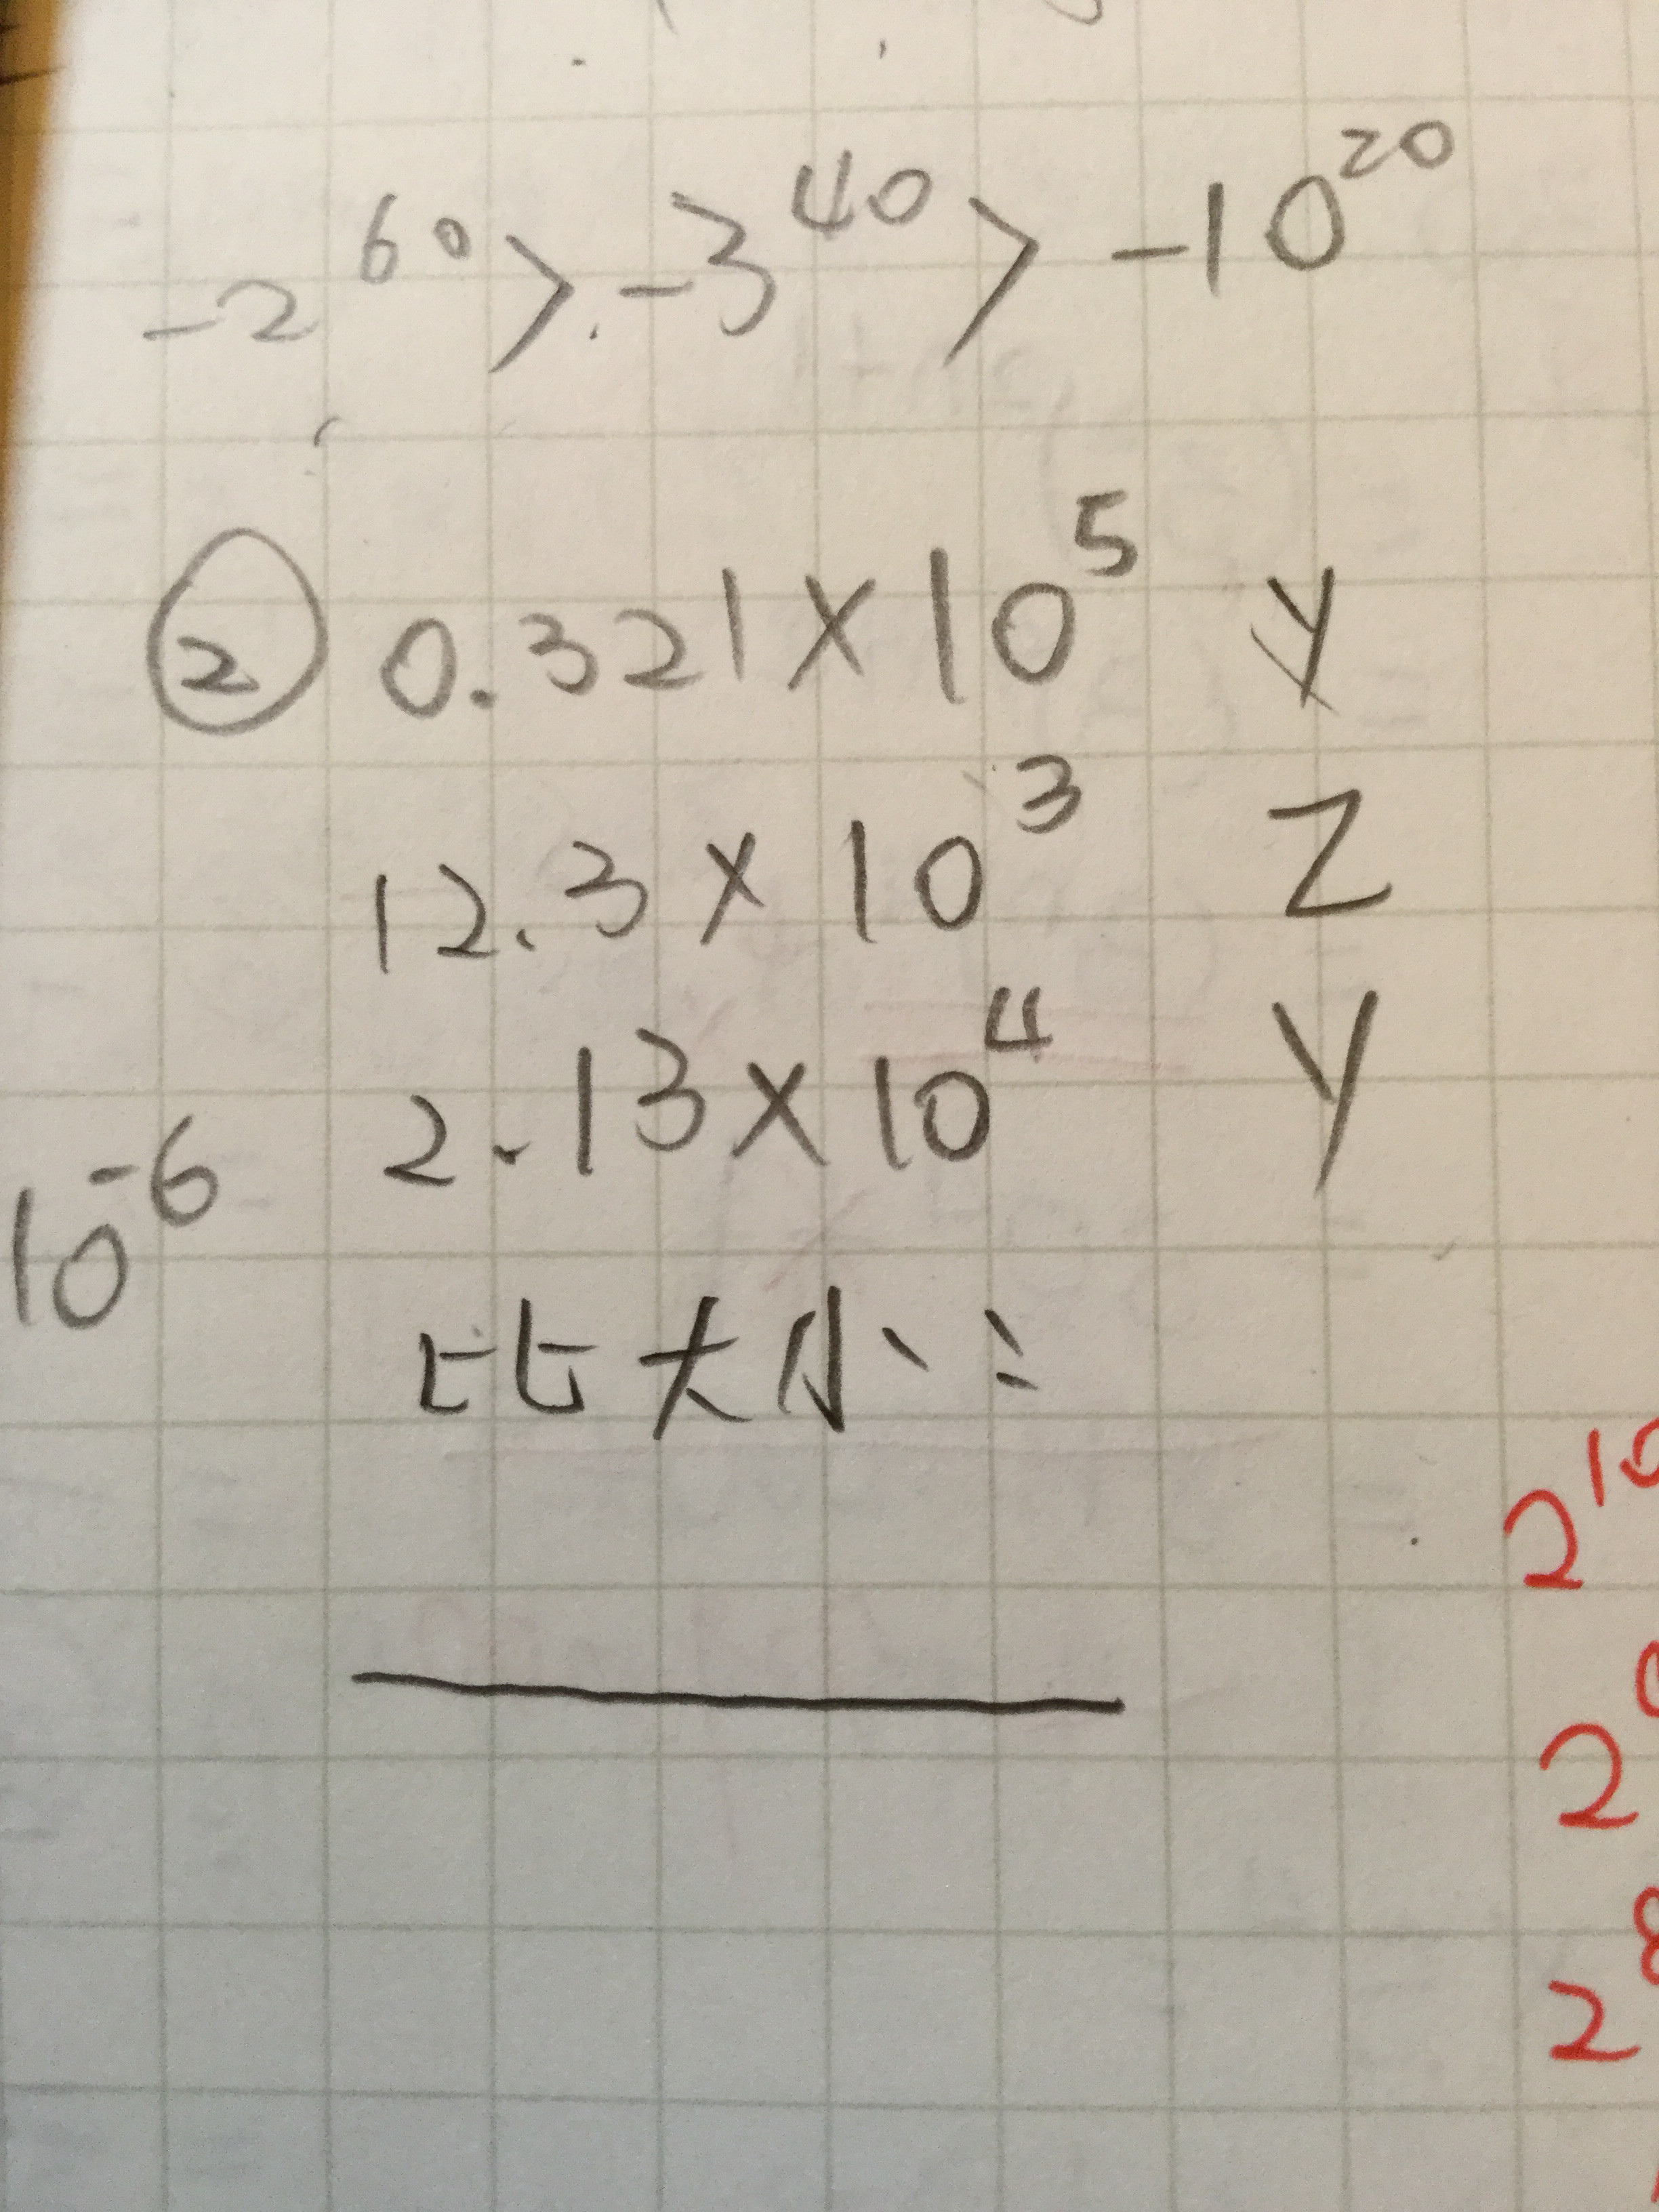 -2⁶⁰ > -3⁴⁰ > -10²⁰
② 0.321×10⁵ Y
12.3×10³ Z
2.13×10⁴ Y
10⁻⁶
比大小:
2¹⁰
2
2⁸